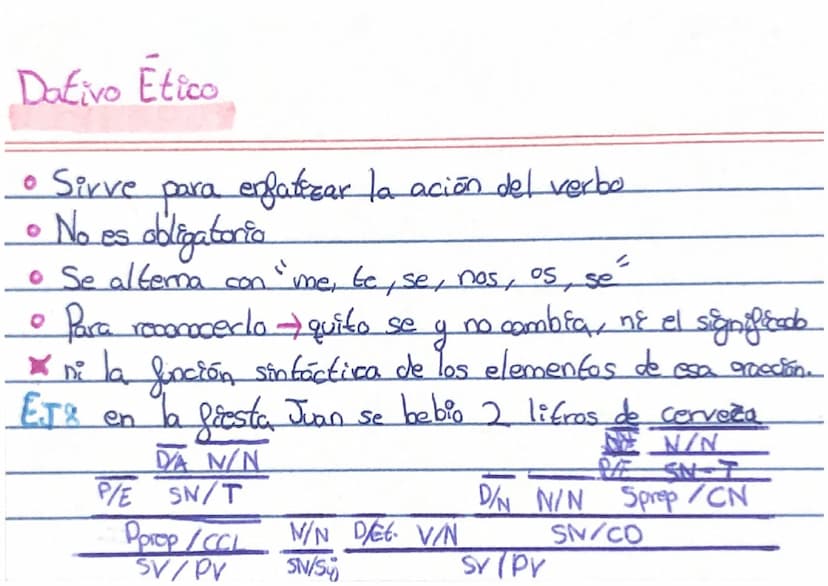 Dativo Ético
Sirve para enfatizar la ación del verbo
No es obligatorio
Se alterna con "me, te, se, nos, os, se"
Para reconocerlo → quito se y no cambia, ni el significado
ni la función sintáctica de los elementos de esa oración.
EJ: en la fiesta Juan se bebio 2 litros de cerveza
D/A N/N N/N
P/E SN-T
P/E SN/T D/N N/N Sprep/CN
Pprep/CCL N/N D/Et. V/N SN/CO
SV/PV SN/Suj SV/PV